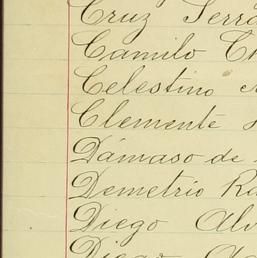 Cruz Serra
Camilo
Celestino
Clemente
Dámaso de
Demetrio
Diego Alv
Diego